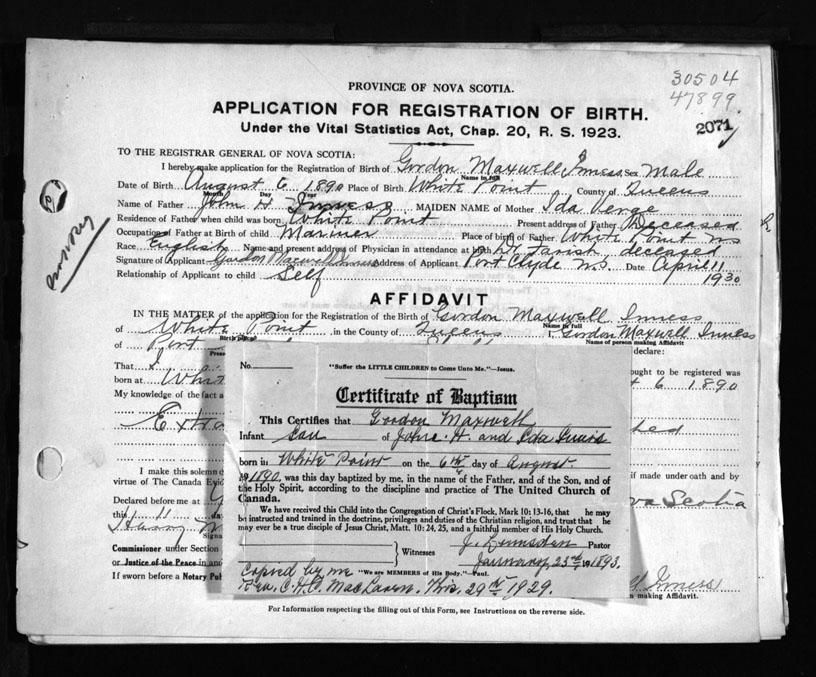 30504
47899
2071
PROVINCE OF NOVA SCOTIA.
APPLICATION FOR REGISTRATION OF BIRTH.
Under the Vital Statistics Act, Chap. 20, R. S. 1923.
TO THE REGISTRAR GENERAL OF NOVA SCOTIA:
I hereby make application for the Registration of Birth of Gordon Maxwell Inness Sex Male
Name in full
Date of Birth August 6 1890 Place of Birth White Point County of Queens
Month Day Year
Name of Father John H Inness MAIDEN NAME of Mother Ida Verge
Residence of Father when child was born White Point Present address of Father Deceased
Occupation of Father at Birth of child Mariner Place of birth of Father White Point N S
Race English Name and present address of Physician in attendance at birth Dr Farish, deceased
Signature of Applicant Gordon Maxwell Inness Address of Applicant Port Clyde N.S. Date April 11
1930
Relationship of Applicant to child Self
AFFIDAVIT
IN THE MATTER of the application for the Registration of the Birth of Gordon Maxwell Inness
Name in full
of White Point, in the County of Queens I, Gordon Maxwell Inness
Birth place Name of person making Affidavit
of Port declare:
That I ought to be registered was
born at Whit 6 1890
My knowledge of the fact a
I make this solemn d if made under oath and by
virtue of The Canada Evid
Declared before me at ova Scotia
this 11 day
Commissioner under Section
or Justice of the Peace in an
If sworn before a Notary Pub Inness
making Affidavit.
No. "Suffer the LITTLE CHILDREN to Come Unto Me."—Jesus.
Certificate of Baptism
This Certifies that Gordon Maxwell
Infant Son of John H. and Ida Inniss
born in White Point on the 6th day of August
1890, was this day baptized by me, in the name of the Father, and of the Son, and of
the Holy Spirit, according to the discipline and practice of The United Church of
Canada.
We have received this Child into the Congregation of Christ's Flock, Mark 10: 13-16, that he may
be instructed and trained in the doctrine, privileges and duties of the Christian religion, and trust that he
may ever be a true disciple of Jesus Christ, Matt. 10: 24, 25, and a faithful member of His Holy Church.
J. Lumsden Pastor
Witnesses
January 23rd 1893.
"We are MEMBERS of His Body."—Paul.
Copied by me
Rev. C.H.C. MacLaren. Nov. 29th 1929.
For Information respecting the filling out of this Form, see Instructions on the reverse side.